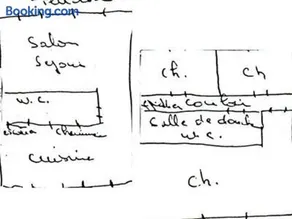 Booking.com
Salon
Sejour
w.c.
cuisine
ch.
ch
couloir
Salle de douche
w.c.
ch.